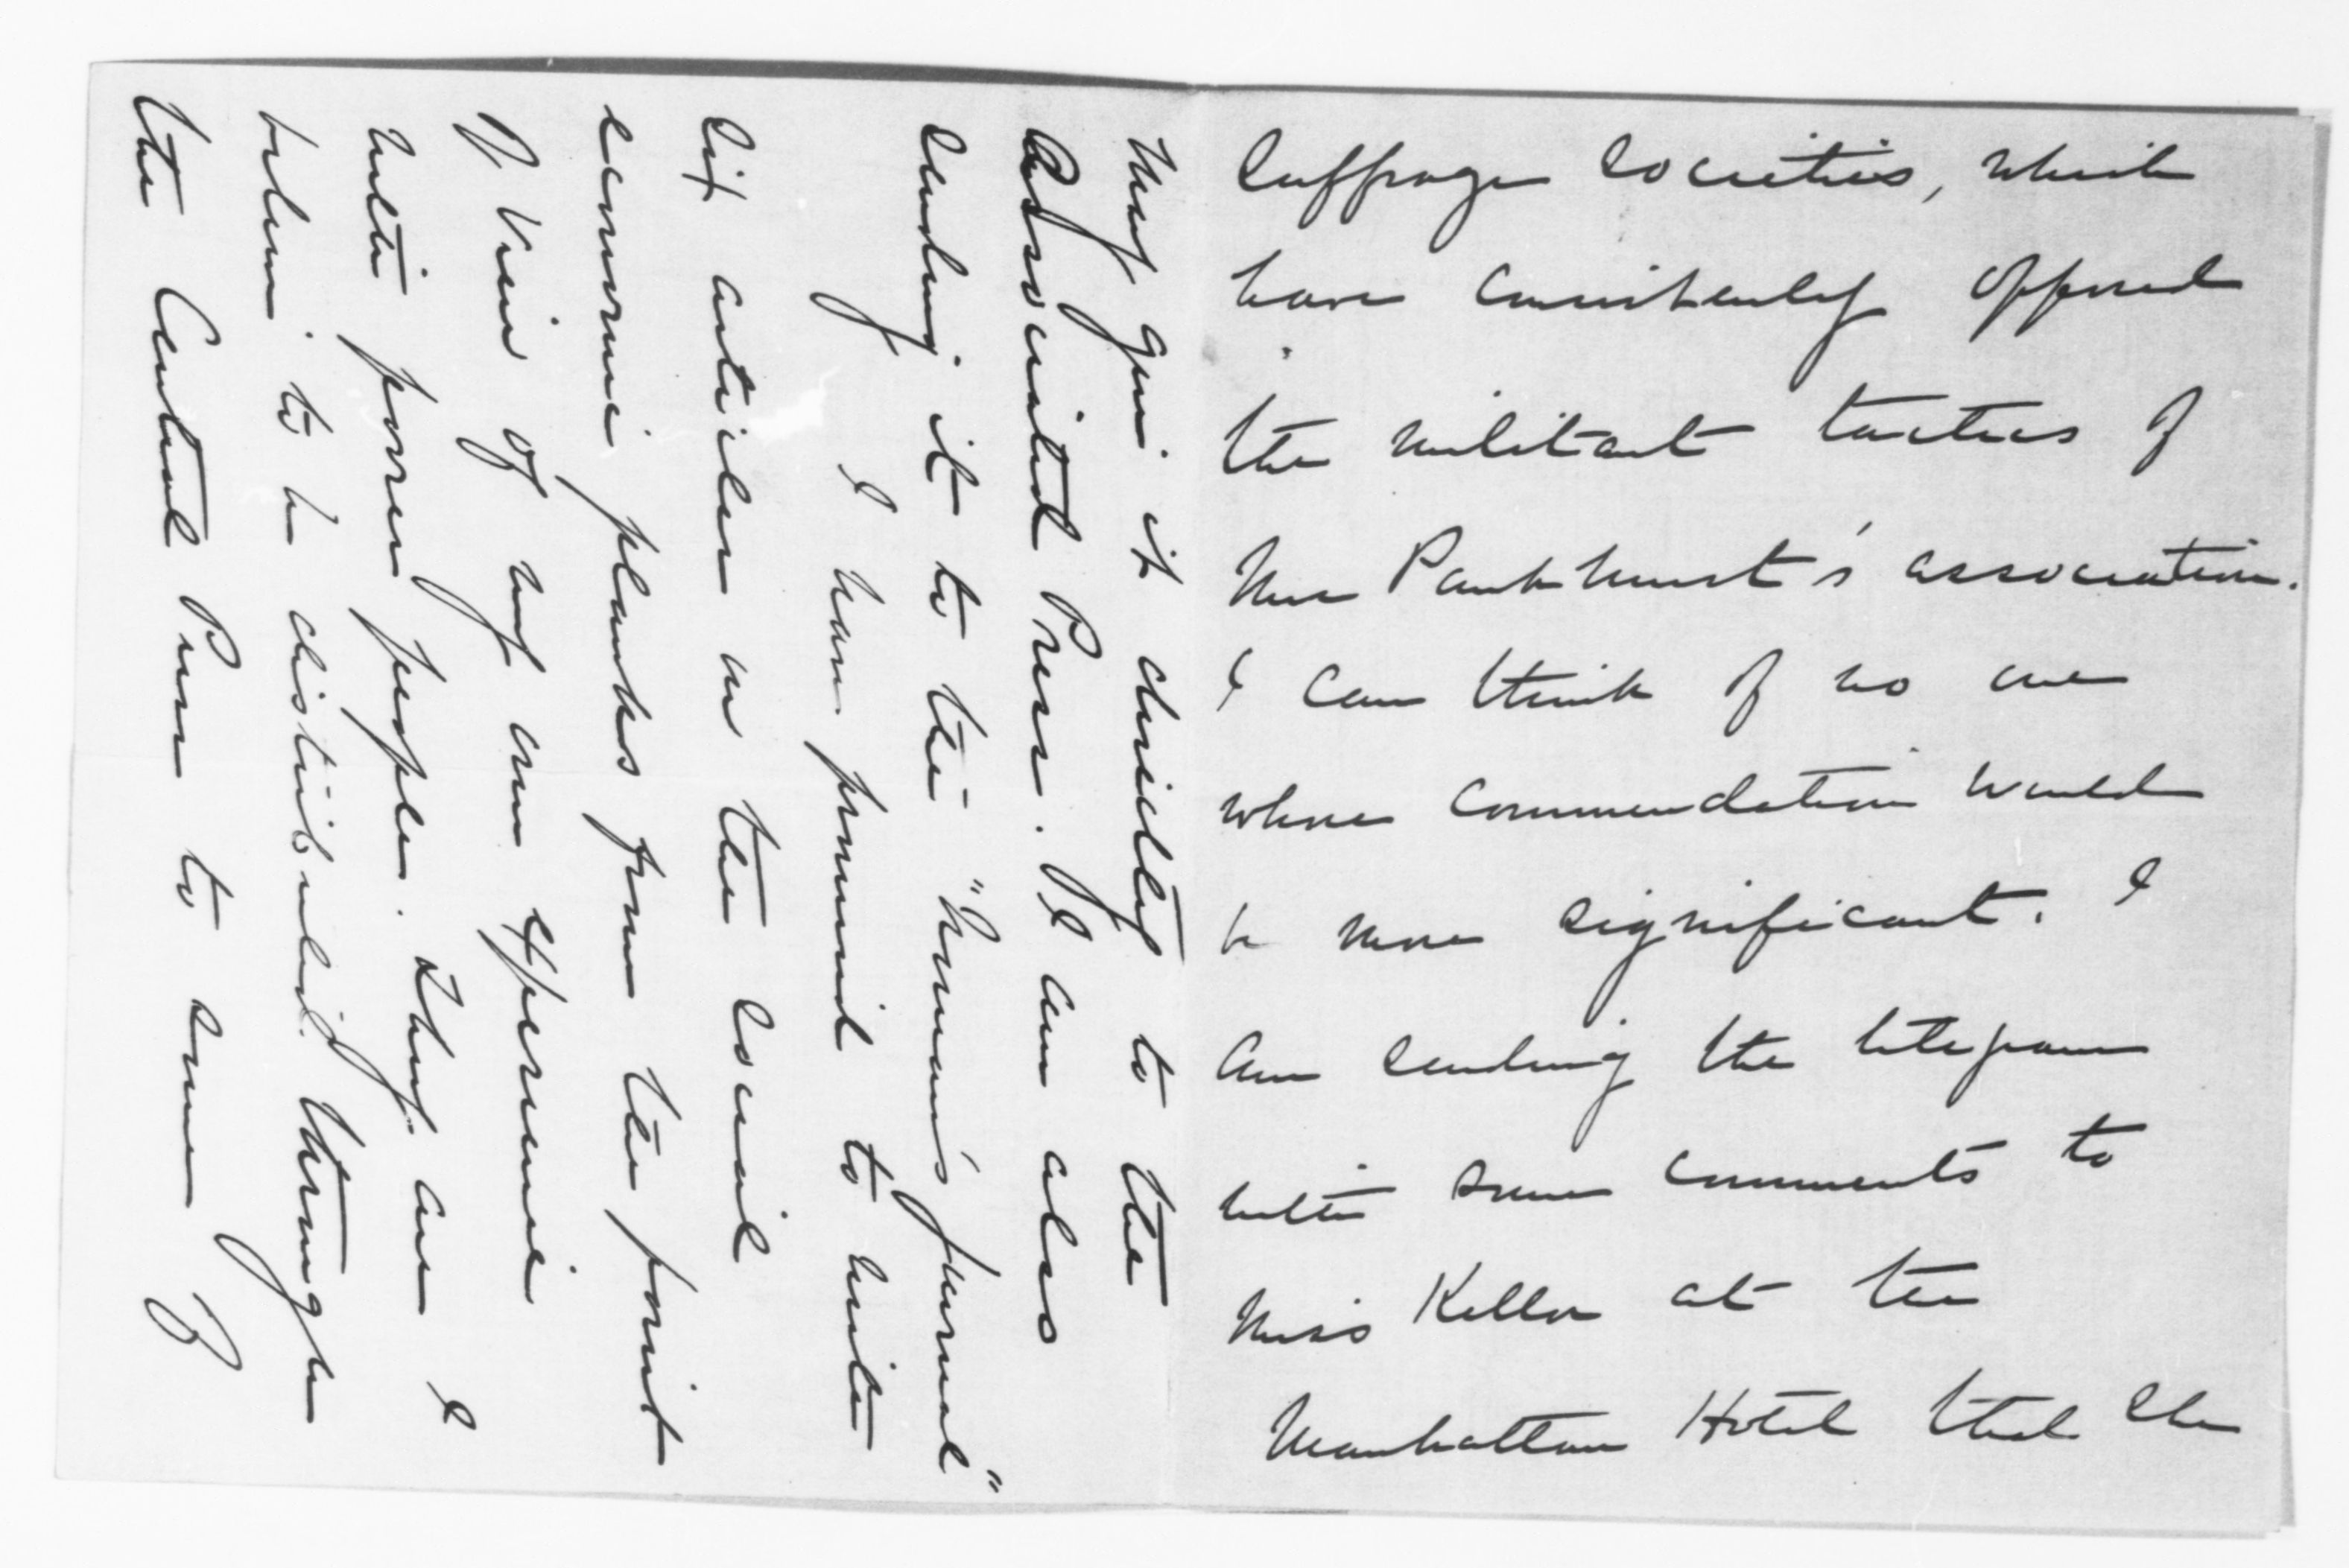 Suffrage Societies, which
have consistently opposed
the militant tactics of
Mrs Pankhurst's association.
I can think of no one
whose commendation would
be more significant. I
am sending the telegram
with some comments to
Miss Kellor at the
Manhattan Hotel that she
may give it directly to the
Associated Press. I am also
sending it to the "Woman's Journal"
I have promised to write
six articles on the social
economic planks from the point
of view of my own experience
with poorer people. They are I
believe to be distributed through
the Central Press to some of